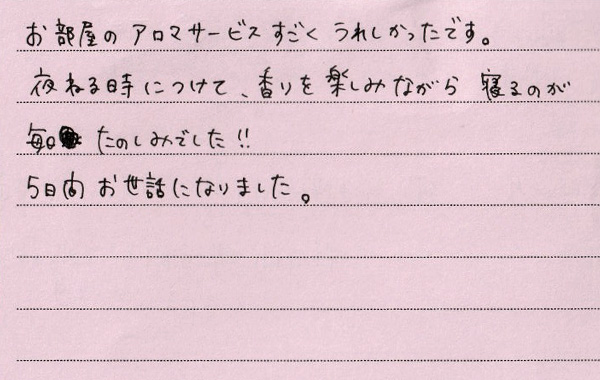 お部屋のアロマサービスすごくうれしかったです。
夜ねる時につけて、香りを楽しみながら寝るのが
毎日たのしみでした!!
5日間お世話になりました。